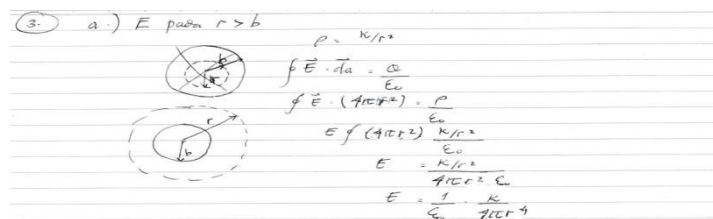 3. a.) E pada r > b
ρ = k/r²
b
a
∮ E⃗ · d⃗a = Q/ε₀
∮ E⃗ · (4πr²) = ρ/ε₀
r
b
E ∮ (4πr²) k/r²/ε₀
E = k/r²/4πr² ε₀
E = 1/ε₀ · k/4πr⁴